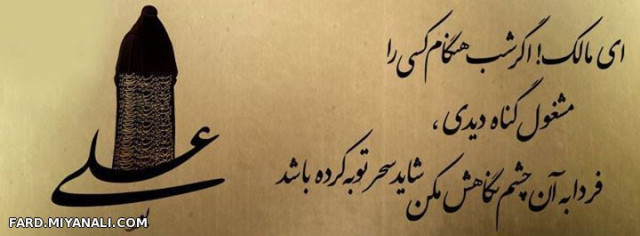 ای مالک! اگر شب هنگام کسی را
مشغول گناه دیدی،
فردا به آن چشم نگاهش مکن شاید سحر توبه کرده باشد
علی
FARD.MIYANALI.COM